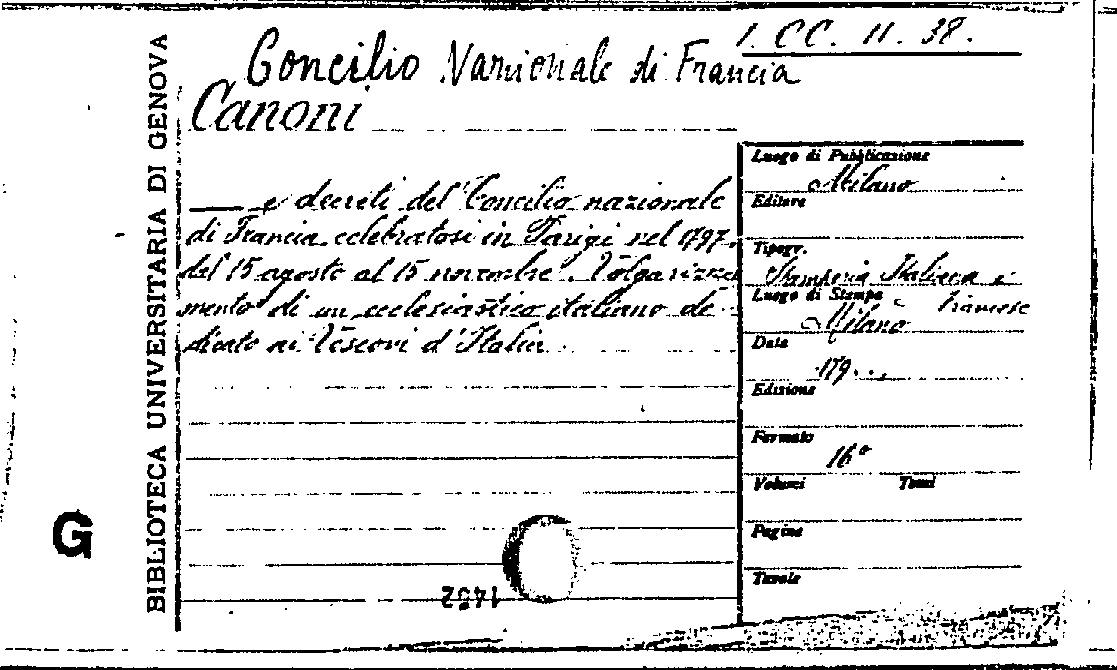 1. CC. 11. 38.
Concilio Nazionale di Francia
Canoni
BIBLIOTECA UNIVERSITARIA DI GENOVA
— e decreti del Concilio nazionale
di Francia celebratosi in Parigi nel 1797.
del 15 agosto al 15 novembre. Volgarizza
mento di un ecclesiastico italiano de-
dicato ai Vescovi d'Italia
Luogo di Pubblicazione
Milano
Editore
Tipogr.
Stamperia Italiana e
Francese
Luogo di Stampa
Milano
Data
179...
Edizione
Formato
16°
Volumi Tomi
Pagine
Tavole
G
1452